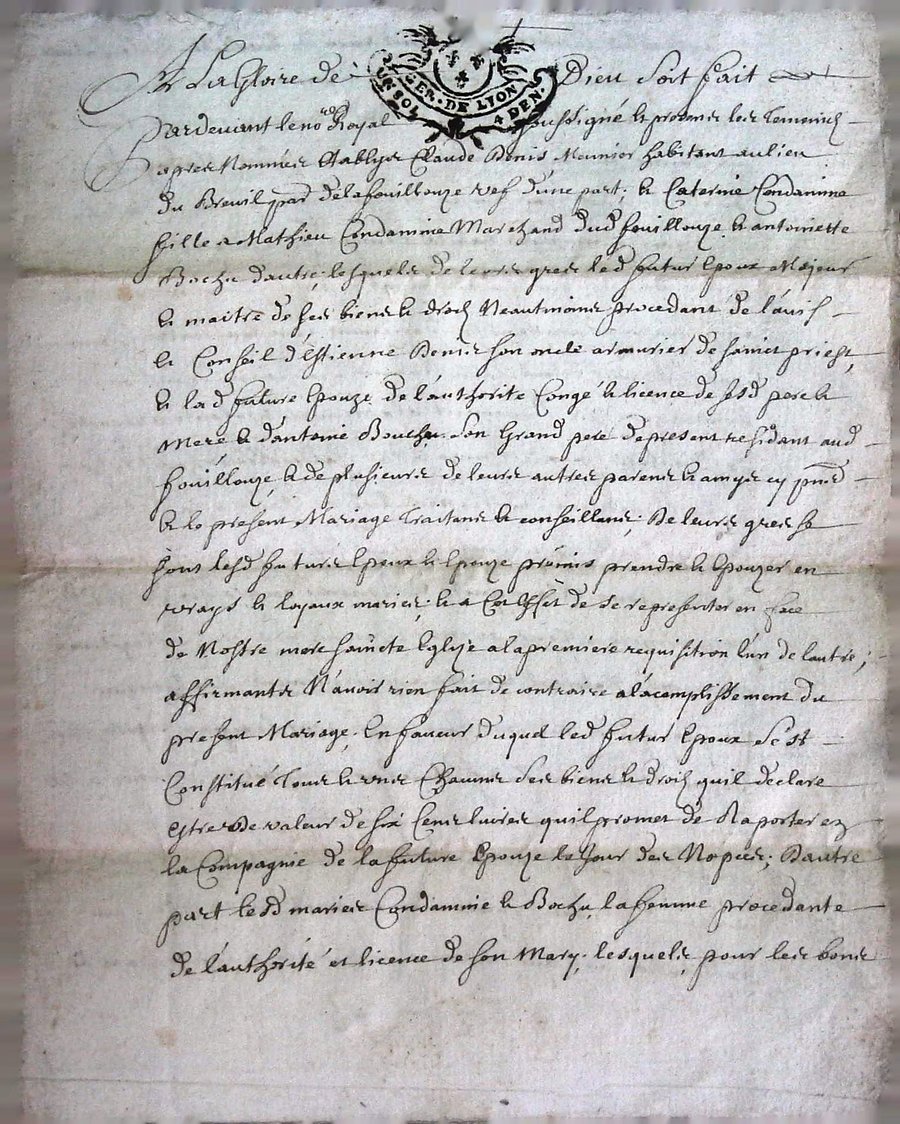 A La Gloire de Dieu Soit fait
GER. DE LION
UN SOL 4 DEN.
Pardevant le no.re Royal soussigné & presens les Temoins
apres Nommés Establys Claude Denis Meunier habitant au lieu
du Breuil par. de la fouillouze vef d'une part; & Caterine Condamine
fille a Mathieu Condamine Marchand dud fouillouze & antoinette
Bochu d'autre; lesquels de leurs grez led futur Epoux Majeur
& maitre de ses biens & droits Neautmoins procedant de l'avis
& Conseil d'Estienne Denis son oncle armurier de sainct priest,
& la d future Epouze de l'authorite Congé & licence de sesd pere &
Mere & d'antoine Bouchu Son Grand pere de present residant aud
fouillouze, & de plusieurs de leurs autres parens & amys cy pnts
& le present Mariage Traitans & conseillans; De leurs grez se
sont lesd futurs Epoux & Epouze promis prendre & Epouzer en
vrays & loyaux mariez; & a Cet Effet de se representer en face
de Nostre mere saincte Eglize a la premiere requisition l'un de l'autre;
affirmants N'avoir rien fait de contraire a l'acomplissement du
present Mariage; En faveur duquel led futur Epoux S'est
Constitué Tous & uns Chacuns Ses biens & droits quil declare
estre de valeur de six Cens livres quil promet de Raporter en
la Compagnie de la future Epouze le Jour des Nopces; Dautre
part lesd mariez Condamine & Bochu, la femme procedante
de l'authorité et licence de son Mary; lesquels, pour les bons